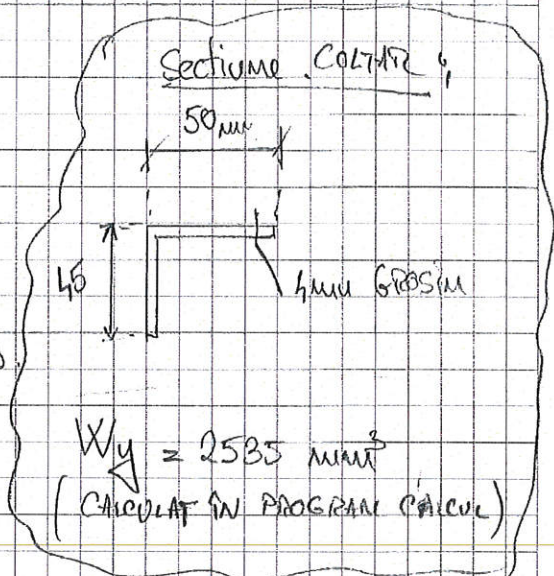 Sectiune COLTAR
50 mm
45
4mm GROSIM
Wy = 2535 mm³
(CALCULAT ÎN PROGRAM CALCUL)